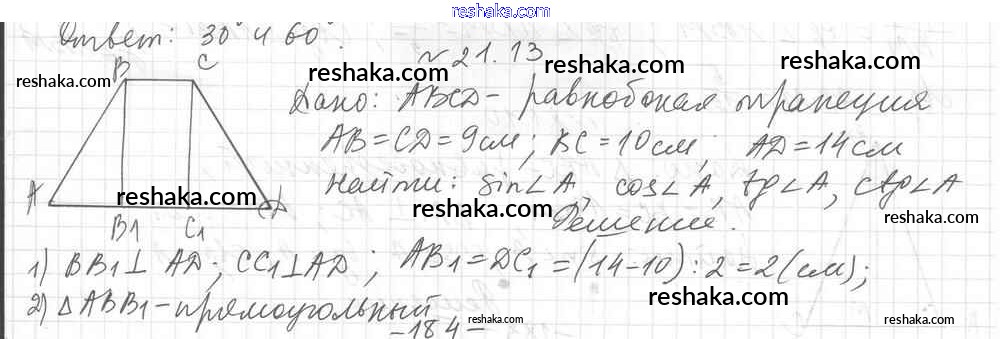 reshaka.com
Ответ: 30° и 60°.
№21.13
B C
reshaka.com reshaka.com reshaka.com
Дано: ABCD - равнобокая трапеция
AB = CD = 9см; BC = 10см; AD = 14см
Найти: sin∠A, cos∠A, tg∠A, ctg∠A
A D
reshaka.com reshaka.com reshaka.com
B1 C1
Решение.
1) BB1⊥ AD; CC1⊥AD; AB1 = DC1 = (14-10):2 = 2(см);
2) △ABB1 - прямоугольный
reshaka.com reshaka.com
-184=
reshaka.com